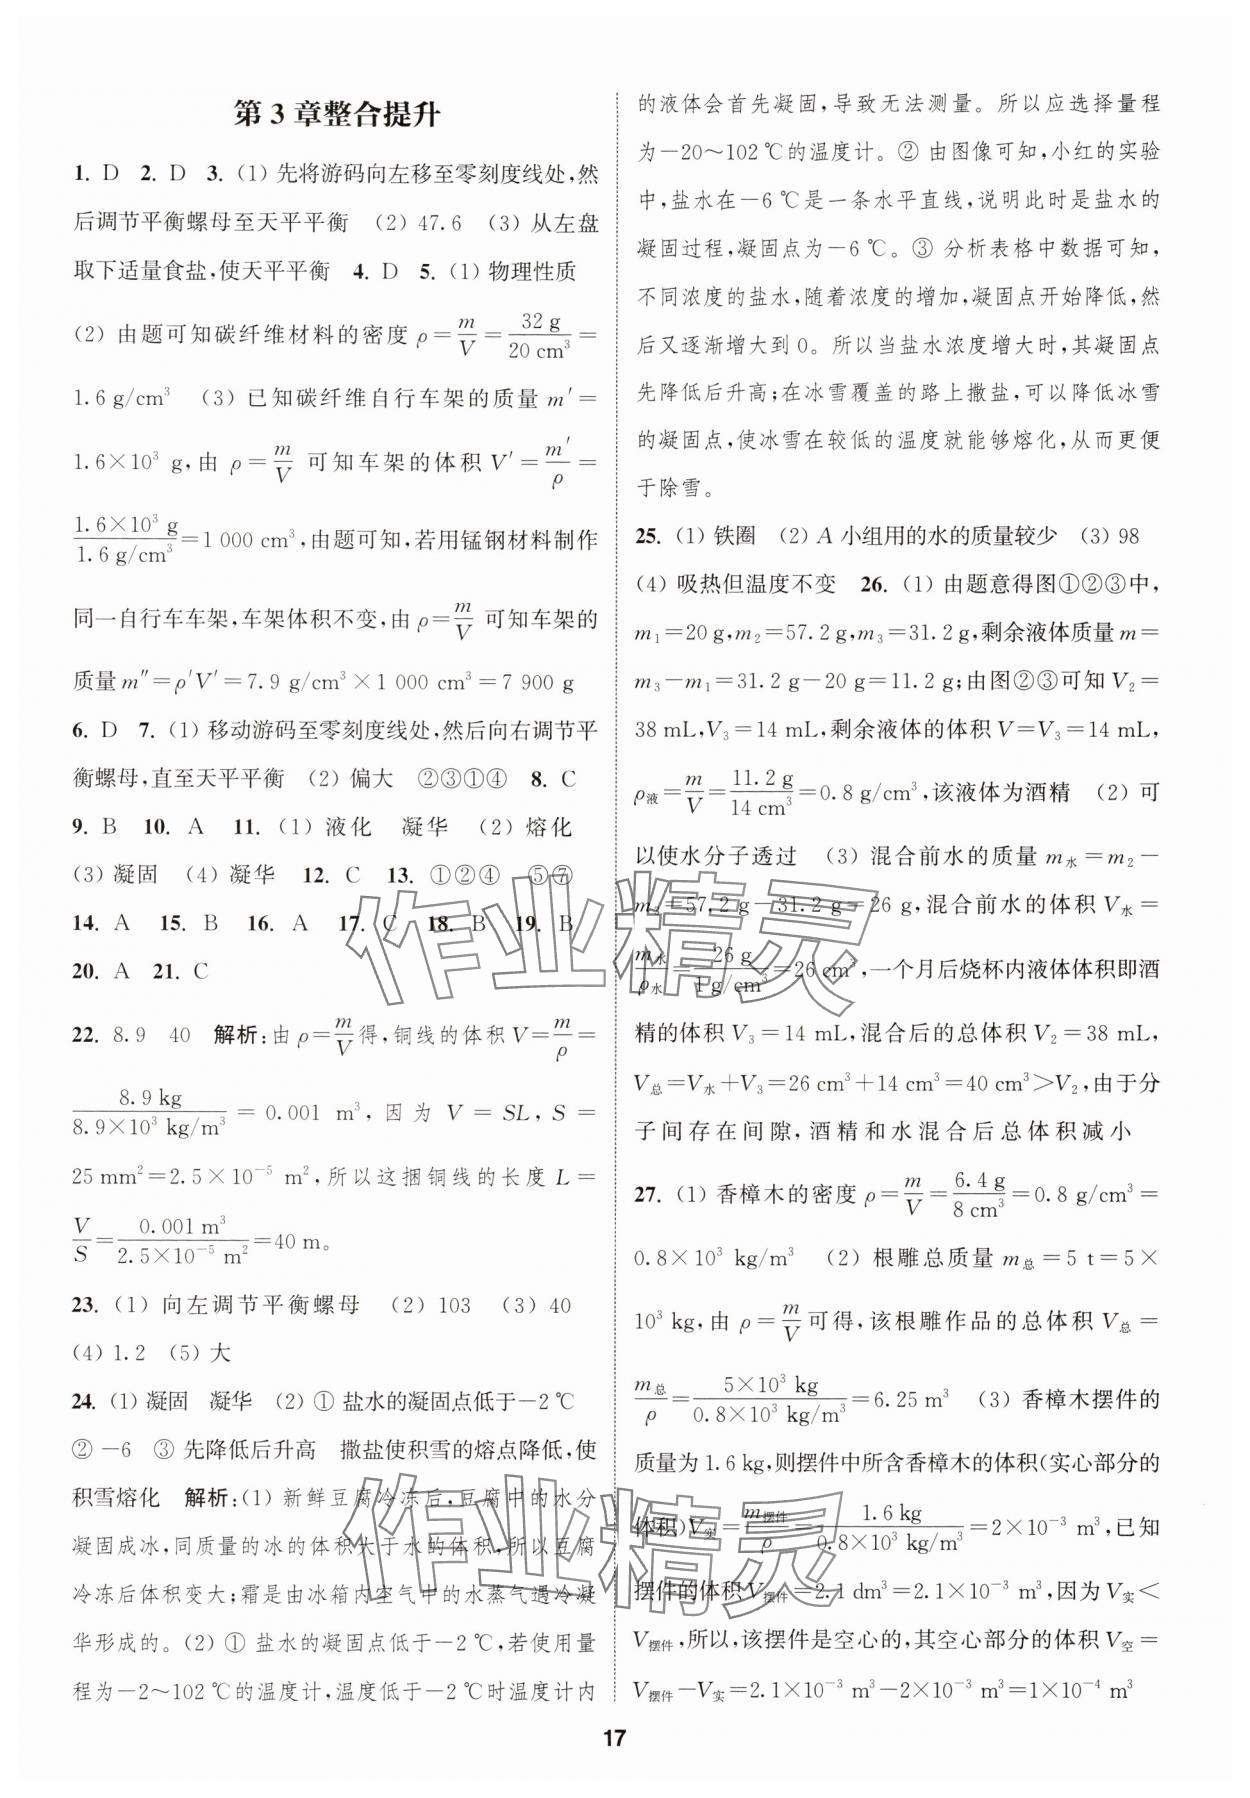 第3章整合提升
1. D 2. D 3. (1) 先将游码向左移至零刻度线处,然
后调节平衡螺母至天平平衡 (2) 47.6 (3) 从左盘
取下适量食盐,使天平平衡 4. D 5. (1) 物理性质
(2) 由题可知碳纤维材料的密度 ρ=m/V=32 g/20 cm³=
1.6 g/cm³ (3) 已知碳纤维自行车架的质量 m′=
1.6×10³ g,由 ρ=m/V 可知车架的体积 V′=m′/ρ=
1.6×10³ g/1.6 g/cm³=1 000 cm³,由题可知,若用锰钢材料制作
同一自行车车架,车架体积不变,由 ρ=m/V 可知车架的
质量 m″=ρ′V′=7.9 g/cm³×1 000 cm³=7 900 g
6. D 7. (1) 移动游码至零刻度线处,然后向右调节平
衡螺母,直至天平平衡 (2) 偏大 ②③①④ 8. C
9. B 10. A 11. (1) 液化 凝华 (2) 熔化
(3) 凝固 (4) 凝华 12. C 13. ①②④ ⑤⑦
14. A 15. B 16. A 17. C 18. B 19. B
20. A 21. C
22. 8.9 40 解析:由 ρ=m/V得,铜线的体积 V=m/ρ=
8.9 kg/8.9×10³ kg/m³=0.001 m³,因为 V=SL,S=
25 mm²=2.5×10⁻⁵ m²,所以这捆铜线的长度 L=
V/S=0.001 m³/2.5×10⁻⁵ m²=40 m。
23. (1) 向左调节平衡螺母 (2) 103 (3) 40
(4) 1.2 (5) 大
24. (1) 凝固 凝华 (2) ① 盐水的凝固点低于-2 ℃
② -6 ③ 先降低后升高 撒盐使积雪的熔点降低,使
积雪熔化 解析:(1) 新鲜豆腐冷冻后,豆腐中的水分
凝固成冰,同质量的冰的体积大于水的体积,所以豆腐
冷冻后体积变大;霜是由冰箱内空气中的水蒸气遇冷凝
华形成的。(2) ① 盐水的凝固点低于-2 ℃,若使用量
程为-2~102 ℃的温度计,温度低于-2 ℃时温度计内
的液体会首先凝固,导致无法测量。所以应选择量程
为-20~102 ℃的温度计。② 由图像可知,小红的实验
中,盐水在-6 ℃是一条水平直线,说明此时是盐水的
凝固过程,凝固点为-6 ℃。③ 分析表格中数据可知,
不同浓度的盐水,随着浓度的增加,凝固点开始降低,然
后又逐渐增大到0。所以当盐水浓度增大时,其凝固点
先降低后升高;在冰雪覆盖的路上撒盐,可以降低冰雪
的凝固点,使冰雪在较低的温度就能够熔化,从而更便
于除雪。
25. (1) 铁圈 (2) A 小组用的水的质量较少 (3) 98
(4) 吸热但温度不变 26. (1) 由题意得图①②③中,
m₁=20 g,m₂=57.2 g,m₃=31.2 g,剩余液体质量 m=
m₃-m₁=31.2 g-20 g=11.2 g;由图②③可知 V₂=
38 mL,V₃=14 mL,剩余液体的体积 V=V₃=14 mL,
ρ液=m/V=11.2 g/14 cm³=0.8 g/cm³,该液体为酒精 (2) 可
以使水分子透过 (3) 混合前水的质量 m水=m₂-
m₃=57.2 g-31.2 g=26 g,混合前水的体积 V水=
m水/ρ水=26 g/1 g/cm³=26 cm³,一个月后烧杯内液体体积即酒
精的体积 V₃=14 mL,混合后的总体积 V₂=38 mL,
V总=V水+V₃=26 cm³+14 cm³=40 cm³>V₂,由于分
子间存在间隙,酒精和水混合后总体积减小
27. (1) 香樟木的密度 ρ=m/V=6.4 g/8 cm³=0.8 g/cm³=
0.8×10³ kg/m³ (2) 根雕总质量 m总=5 t=5×
10³ kg,由 ρ=m/V可得,该根雕作品的总体积 V总=
m总/ρ=5×10³ kg/0.8×10³ kg/m³=6.25 m³ (3) 香樟木摆件的
质量为 1.6 kg,则摆件中所含香樟木的体积(实心部分的
体积)V实=m摆件/ρ=1.6 kg/0.8×10³ kg/m³=2×10⁻³ m³,已知
摆件的体积 V摆件=2.1 dm³=2.1×10⁻³ m³,因为 V实<
V摆件,所以,该摆件是空心的,其空心部分的体积 V空=
V摆件-V实=2.1×10⁻³ m³-2×10⁻³ m³=1×10⁻⁴ m³
作业精灵
作业精灵
17